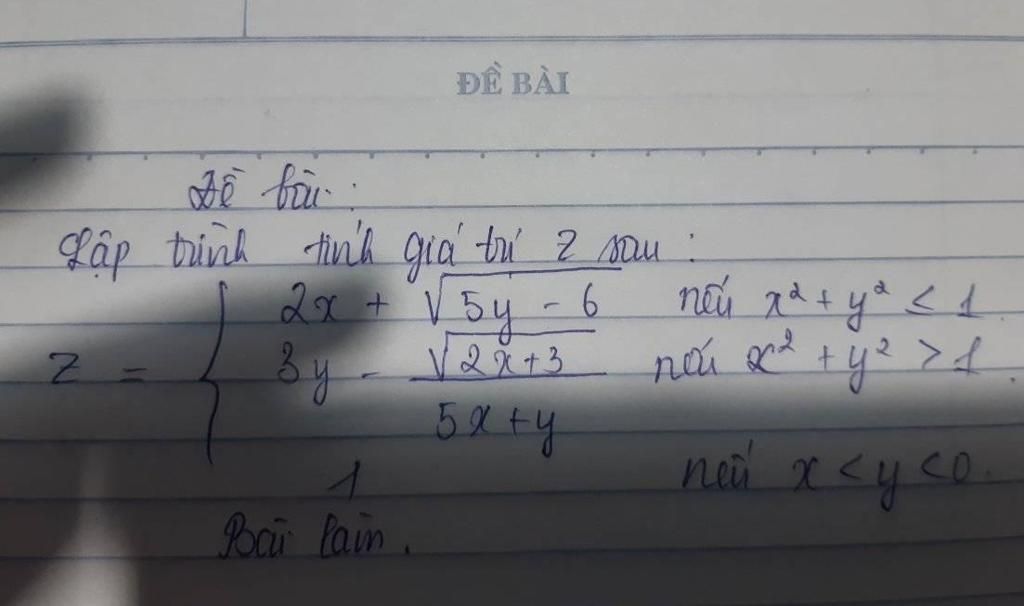 ĐỀ BÀI
Đề bài:
Lập trình tính giá trị z sau:
2x + √(5y - 6) nếu x² + y² ≤ 1.
z = { 3y - √(2x+3) / (5x+y) nếu x² + y² > 1.
1 nếu x < y < 0.
Bài làm.